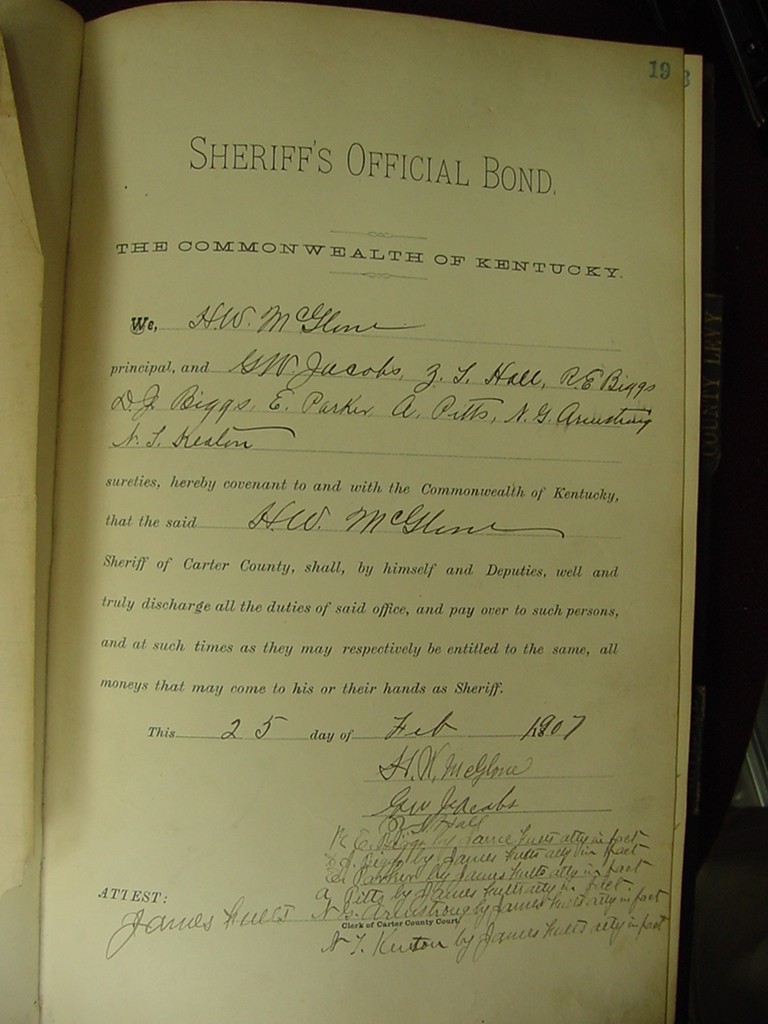 19
SHERIFF'S OFFICIAL BOND.
THE COMMONWEALTH OF KENTUCKY.
We, H.W. McGlone
principal, and G.W. Jacobs, Z. T. Hall, R.E. Biggs
D.J. Biggs, E. Parker, A. Pitts, N. G. Armstrong
N. T. Keaton
sureties, hereby covenant to and with the Commonwealth of Kentucky,
that the said H.W. McGlone
Sheriff of Carter County, shall, by himself and Deputies, well and
truly discharge all the duties of said office, and pay over to such persons,
and at such times as they may respectively be entitled to the same, all
moneys that may come to his or their hands as Sheriff.
This 25 day of Feb 1907
H. W. McGlone
G W Jacobs
Z. T. Hall
R. E. Biggs by James atty in fact
D. J. Biggs by James atty in fact
E. Parker by James atty in fact
A. Pitts by James atty in fact
ATTEST:
James
N. G. Armstrong by James atty in fact
Clerk of Carter County Court
N. T. Keaton by James atty in fact
COUNTY LEVY